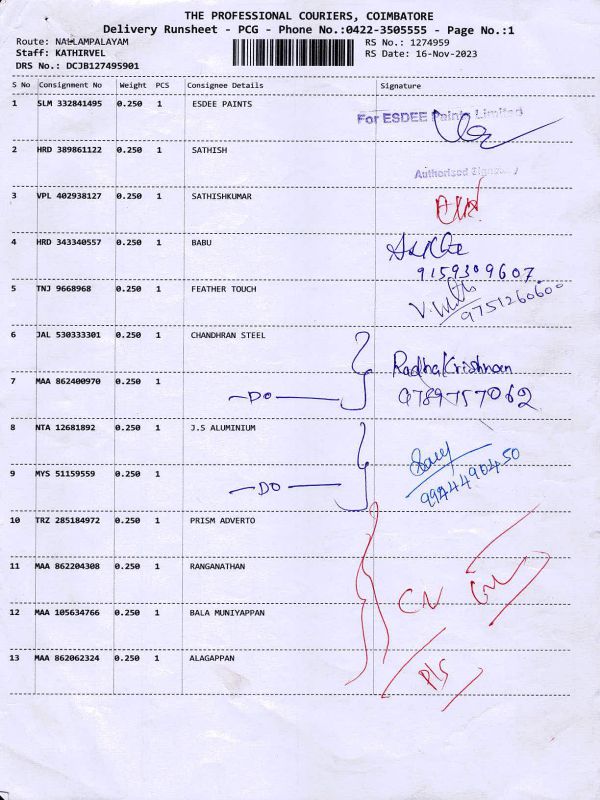 THE PROFESSIONAL COURIERS, COIMBATORE
Delivery Runsheet - PCG - Phone No.:0422-3505555 - Page No.:1
Route: NALLAMPALAYAM
RS No.: 1274959
Staff: KATHIRVEL
RS Date: 16-Nov-2023
DRS No.: DCJB127495901
S No Consignment No Weight PCS Consignee Details Signature
1 SLM 332841495 0.250 1 ESDEE PAINTS
For ESDEE Paints Limited
2 HRD 389861122 0.250 1 SATHISH
Authorised Signatory
3 VPL 402938127 0.250 1 SATHISHKUMAR
4 HRD 343340557 0.250 1 BABU
9159309607
5 TNJ 9668968 0.250 1 FEATHER TOUCH
9751260600
6 JAL 530333301 0.250 1 CHANDHRAN STEEL
RadhaKrishnan
7 MAA 862400970 0.250 1
—DO— 9789757062
8 NTA 12681892 0.250 1 J.S ALUMINIUM
9 MYS 51159559 0.250 1
—DO— 9944490450
10 TRZ 285184972 0.250 1 PRISM ADVERTO
11 MAA 862204308 0.250 1 RANGANATHAN
CN
12 MAA 105634766 0.250 1 BALA MUNIYAPPAN
13 MAA 862062324 0.250 1 ALAGAPPAN